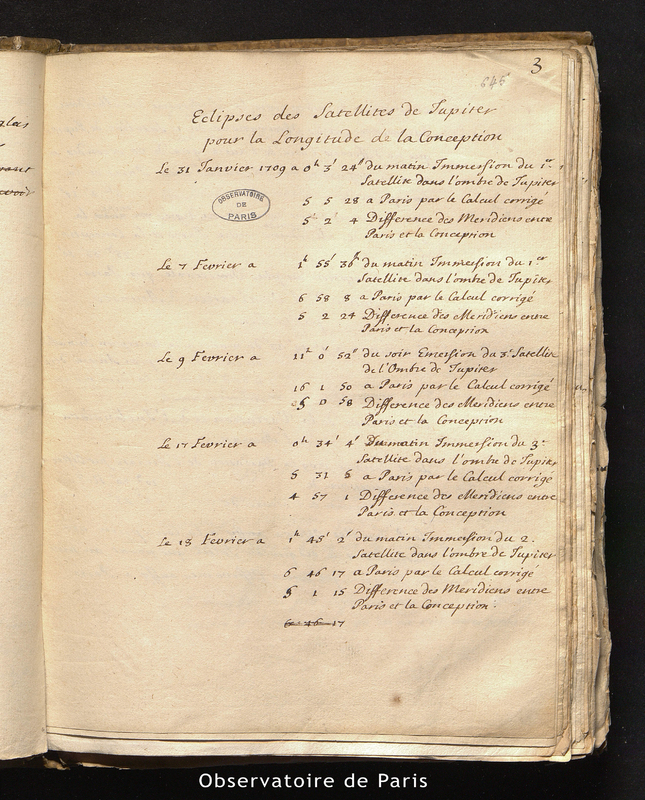 3
645
Eclipses des Satellites de Jupiter
pour la Longitude de la Conception
Le 31 Janvier 1709 a 0h 3' 24" du matin Immersion du 1er
Satellite dans l'ombre de Jupiter
5 5 28 a Paris par le Calcul corrigé
5 2 4 Difference des Meridiens entre
Paris et la Conception
OBSERVATOIRE
DE
PARIS
Le 7 Fevrier a 1h 55' 36" du matin Immersion du 1er
Satellite dans l'ombre de Jupiter
6 58 8 a Paris par le Calcul corrigé
5 2 24 Difference des Meridiens entre
Paris et la Conception
Le 9 Fevrier a 11h 0' 52" du soir Emersion du 3e Satellite
de l'Ombre de Jupiter
16 1 50 a Paris par le Calcul corrigé
5 0 58 Difference des Meridiens entre
Paris et la Conception
Le 17 Fevrier a 0h 34' 4" Du matin Immersion du 3e
Satellite dans l'ombre de Jupiter
5 31 5 a Paris par le Calcul corrigé
4 57 1 Difference des Meridiens entre
Paris et la Conception
Le 18 Fevrier a 1h 45' 2" du matin Immersion du 2.
Satellite dans l'ombre de Jupiter
6 46 17 a Paris par le Calcul corrigé
5 1 15 Difference des Meridiens entre
Paris et la Conception
6 46 17
Observatoire de Paris